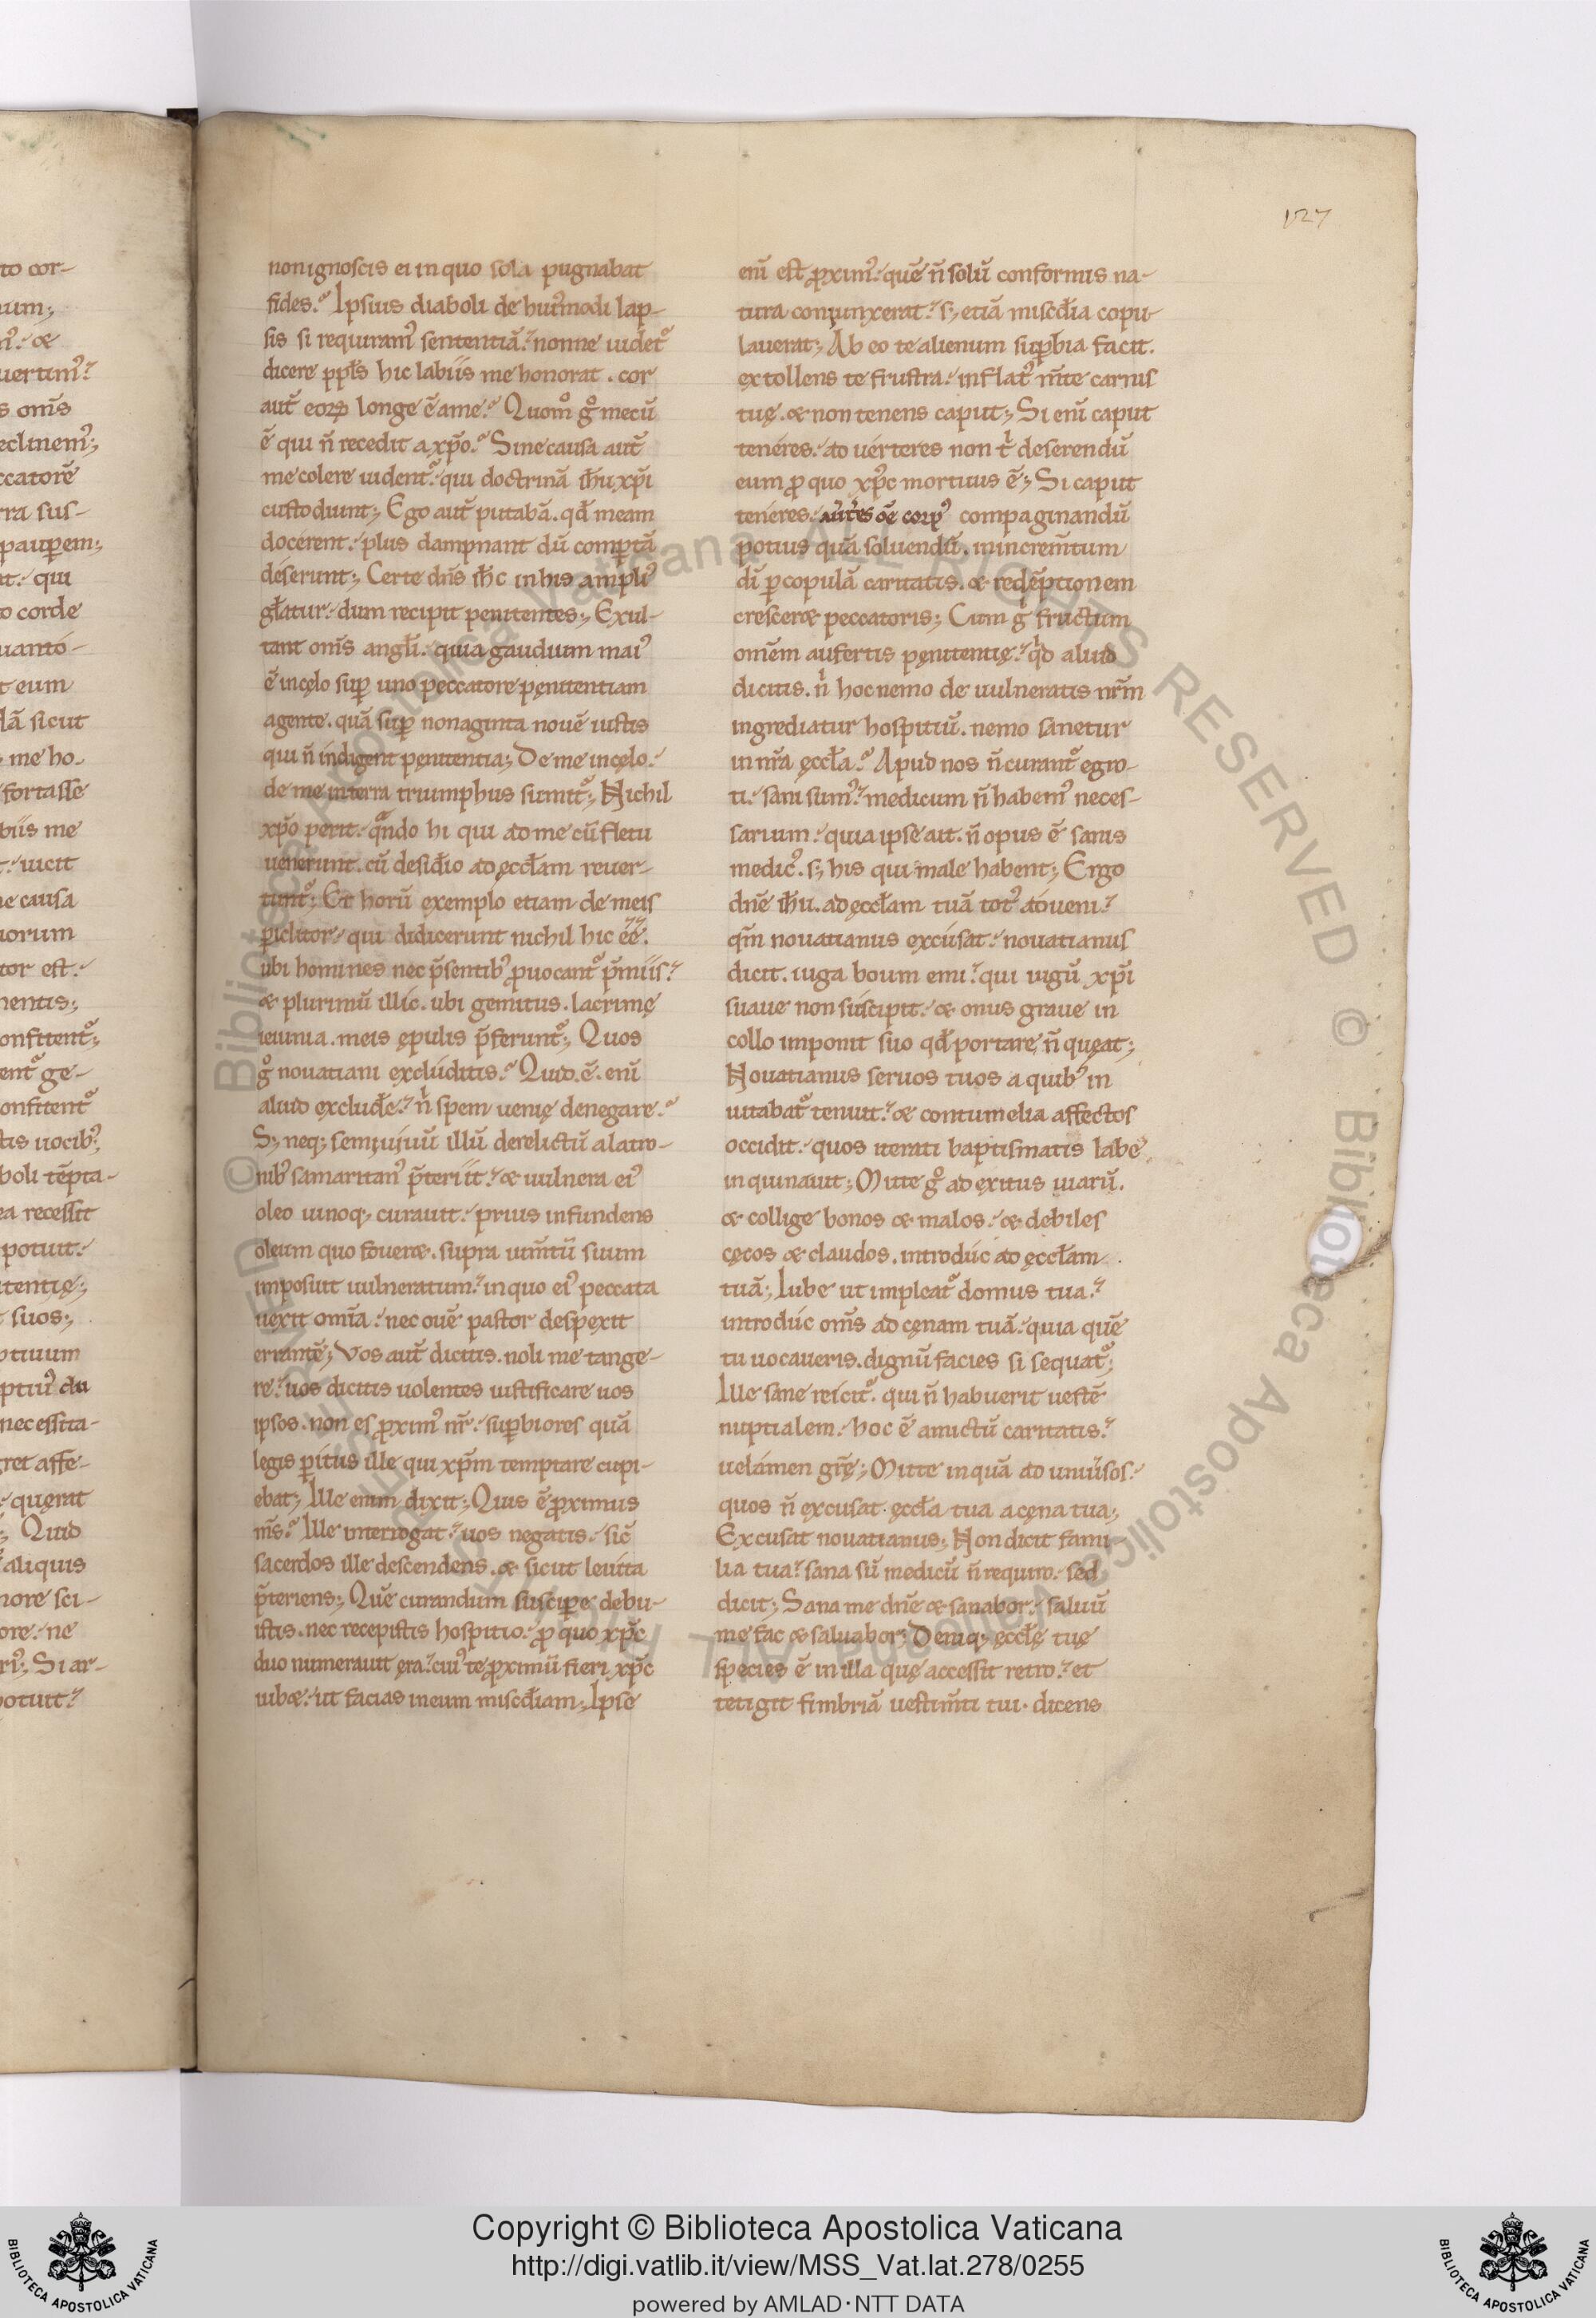 127
to cor-
num;
m᷒. &
uertim᷒?
s om̄s
eclinem᷒;
ccatorē
rra sus-
paup̱em;
at. qui
o corde
uanto-
t eum
lā sicut
me ho-
fortasse
biis me
uicit
ne causa
uorum
tor est.
nentis;
onfitent᷒;
ent᷒ ge-
onfitent᷒
tis uocib᷒.
boli tēpta-
ea recessit
potuit.
tentię;
t suos;
ptiuum
necessita-
gret affe-
quęrat
Quid
aliquis
more sci-
ore. ne
Si ar-
potuit?
non ignoscis ei in quo sola pugnabat
fides.? Ipsius diaboli de hui᷒modi lap-
sis si requiram᷒ sententiā. nonne uidet᷒
dicere pp̄ls hic labiis me honorat. cor
aut̄ eoꝝ longe ē a me.? Quom̊ g̊ mecū
ē qui n̄ recedit a xp̄o.? Sine causa aut̄
me colere uident᷒. qui doctrinā ih̄u xp̄i
custodiunt; Ego aut̄ putabā. qd̄ meam
docerent. plus dampnant dū comp̱tā
deserunt; Certe dn̄s ih̄c in his ampli᷒
gl̄atur. dum recipit penitentes; Exul-
tant om̄s angl̄i. quia gaudium mai᷒
ē in cęlo sup̱ uno peccatore pęnitentiam
agente. quā sup̱ nonaginta nouē iustis
qui n̄ indigent pęnitentia; De me in cęlo.
de me in terra triumphus sumit᷒; Nichil
xp̄o perit. qn̄do hi qui ad me cū fletu
uenerunt. cū desid̄io ad ęccl̄am reuer-
tunt᷒; Et horū exemplo etiam de meis
p̱iclitor. qui didicerunt nichil hic ēē.
ubi homines nec p̄sentib᷒ ꝓuocant᷒ p̄miis?
& plurimū illic. ubi gemitus. lacrimę
ieiunia. meis ępulis p̄ferunt᷒; Quos
g̊ nouatiani excluditis.? Quid. ē. enī
aliud excludēe? nͥ spem uenię denegare.?
S; neq; semiuiuū illū derelictū a latro-
nib᷒ samaritan᷒ p̄teriit. & uulnera ei᷒
oleo uinoq; curauit. prius infundens
oleum quo fouer&. supra ium̄tū suum
imposuit uulneratum. in quo ei᷒ peccata
uexit om̄ia. nec ouē pastor despexit
errantē; Vos aut̄ dicitis. noli me tange-
re. uos dicitis uolentes iustificare uos
ipsos. non es ꝓxim᷒ nr̄. sup̱biores quā
legis p̱itus ille qui xp̄m temptare cupi-
ebat; Ille enim dixit; Quis ē ꝓximus
m̄s.? Ille interrogat. uos negatis. sic̄
sacerdos ille descendens. & sicut leuita
p̄teriens; Quē curandum suscipe debu-
istis. nec recepistis hospitio. ꝓ quo xp̄c
duo numerauit ęra. cui᷒ te ꝓximū fieri xp̄c
iub&. ut facias in eum misc̄diam; Ipse
enī est ꝓxim᷒. quē n̄ solū conformis na-
tura coniunxerat. s; etiā misc̄dia copu-
lauerat; Ab eo te alienum sup̱bia facit.
extollens te frustra. inflat᷒ m̄te carnis
tuę. & non tenens caput; Si enī caput
teneres. aduerteres non tͥ deserendū
eum ꝓ quo xp̄c mortuus ē; Si caput
teneres. auͥtes oē corp᷒ compaginandū
potius quā soluendū. in increm̄tum
dī p̱ copulā caritatis. & redēptionem
crescer& peccatoris; Cum g̊ fructum
om̄em aufertis pęnitentię. qͥd aliud
dicitis. nͥ hoc nemo de uulneratis nr̄m
ingrediatur hospitiū. nemo sanetur
in nr̄a ęccl̄a.? Apud nos n̄ curant᷒ egro-
ti. sani sum᷒. medicum n̄ habem᷒ neces-
sarium. quia ipse ait. n̄ opus ē sanis
medic᷒. s; his qui male habent; Ergo
dn̄e ih̄u. ad ęccl̄am tuā tot᷒ adueni.
qm̄ nouatianus excusat. nouatianus
dicit. iuga boum emi. qui iugū xp̄i
suaue non suscipit. & onus graue in
collo imponit suo qd̄ portare n̄ queat;
Nouatianus seruos tuos a quib᷒ in
uitabat᷒ tenuit. & contumelia affectos
occidit. quos iterati baptismatis labe
inquinauit; Mitte g̊ ad exitus uiarū.
& collige bonos & malos. & debiles
cęcos & claudos. introduc ad ęccl̄am
tuā; Iube ut impleat᷒ domus tua.
introduc om̄s ad cęnam tuā. quia quē
tu uocaueris. dignū facies si sequat᷒;
Ille sane reicit᷒. qui n̄ habuerit uestē
nuptialem. hoc ē amictū caritatis.
uelamen gr̄ę; Mitte in quā ad uniūsos.
quos n̄ excusat ęccl̄a tua a cena tua;
Excusat nouatianus; Non dicit fami-
lia tua. sana sū medicū n̄ requiro. sed
dicit; Sana me dn̄e & sanabor. saluū
me fac & saluabor; Deniq; ęccl̄ę tuę
species ē in illa quę accessit retro. et
tetigit fimbriā uestim̄ti tui. dicens
© Biblioteca Apostolica Vaticana ALL RIGHTS RESERVED © Biblioteca Apostolica Vaticana ALL RIGHTS RESERVED
Copyright © Biblioteca Apostolica Vaticana
http://digi.vatlib.it/view/MSS_Vat.lat.278/0255
powered by AMLAD·NTT DATA
BIBLIOTECA APOSTOLICA VATICANA
BIBLIOTECA APOSTOLICA VATICANA